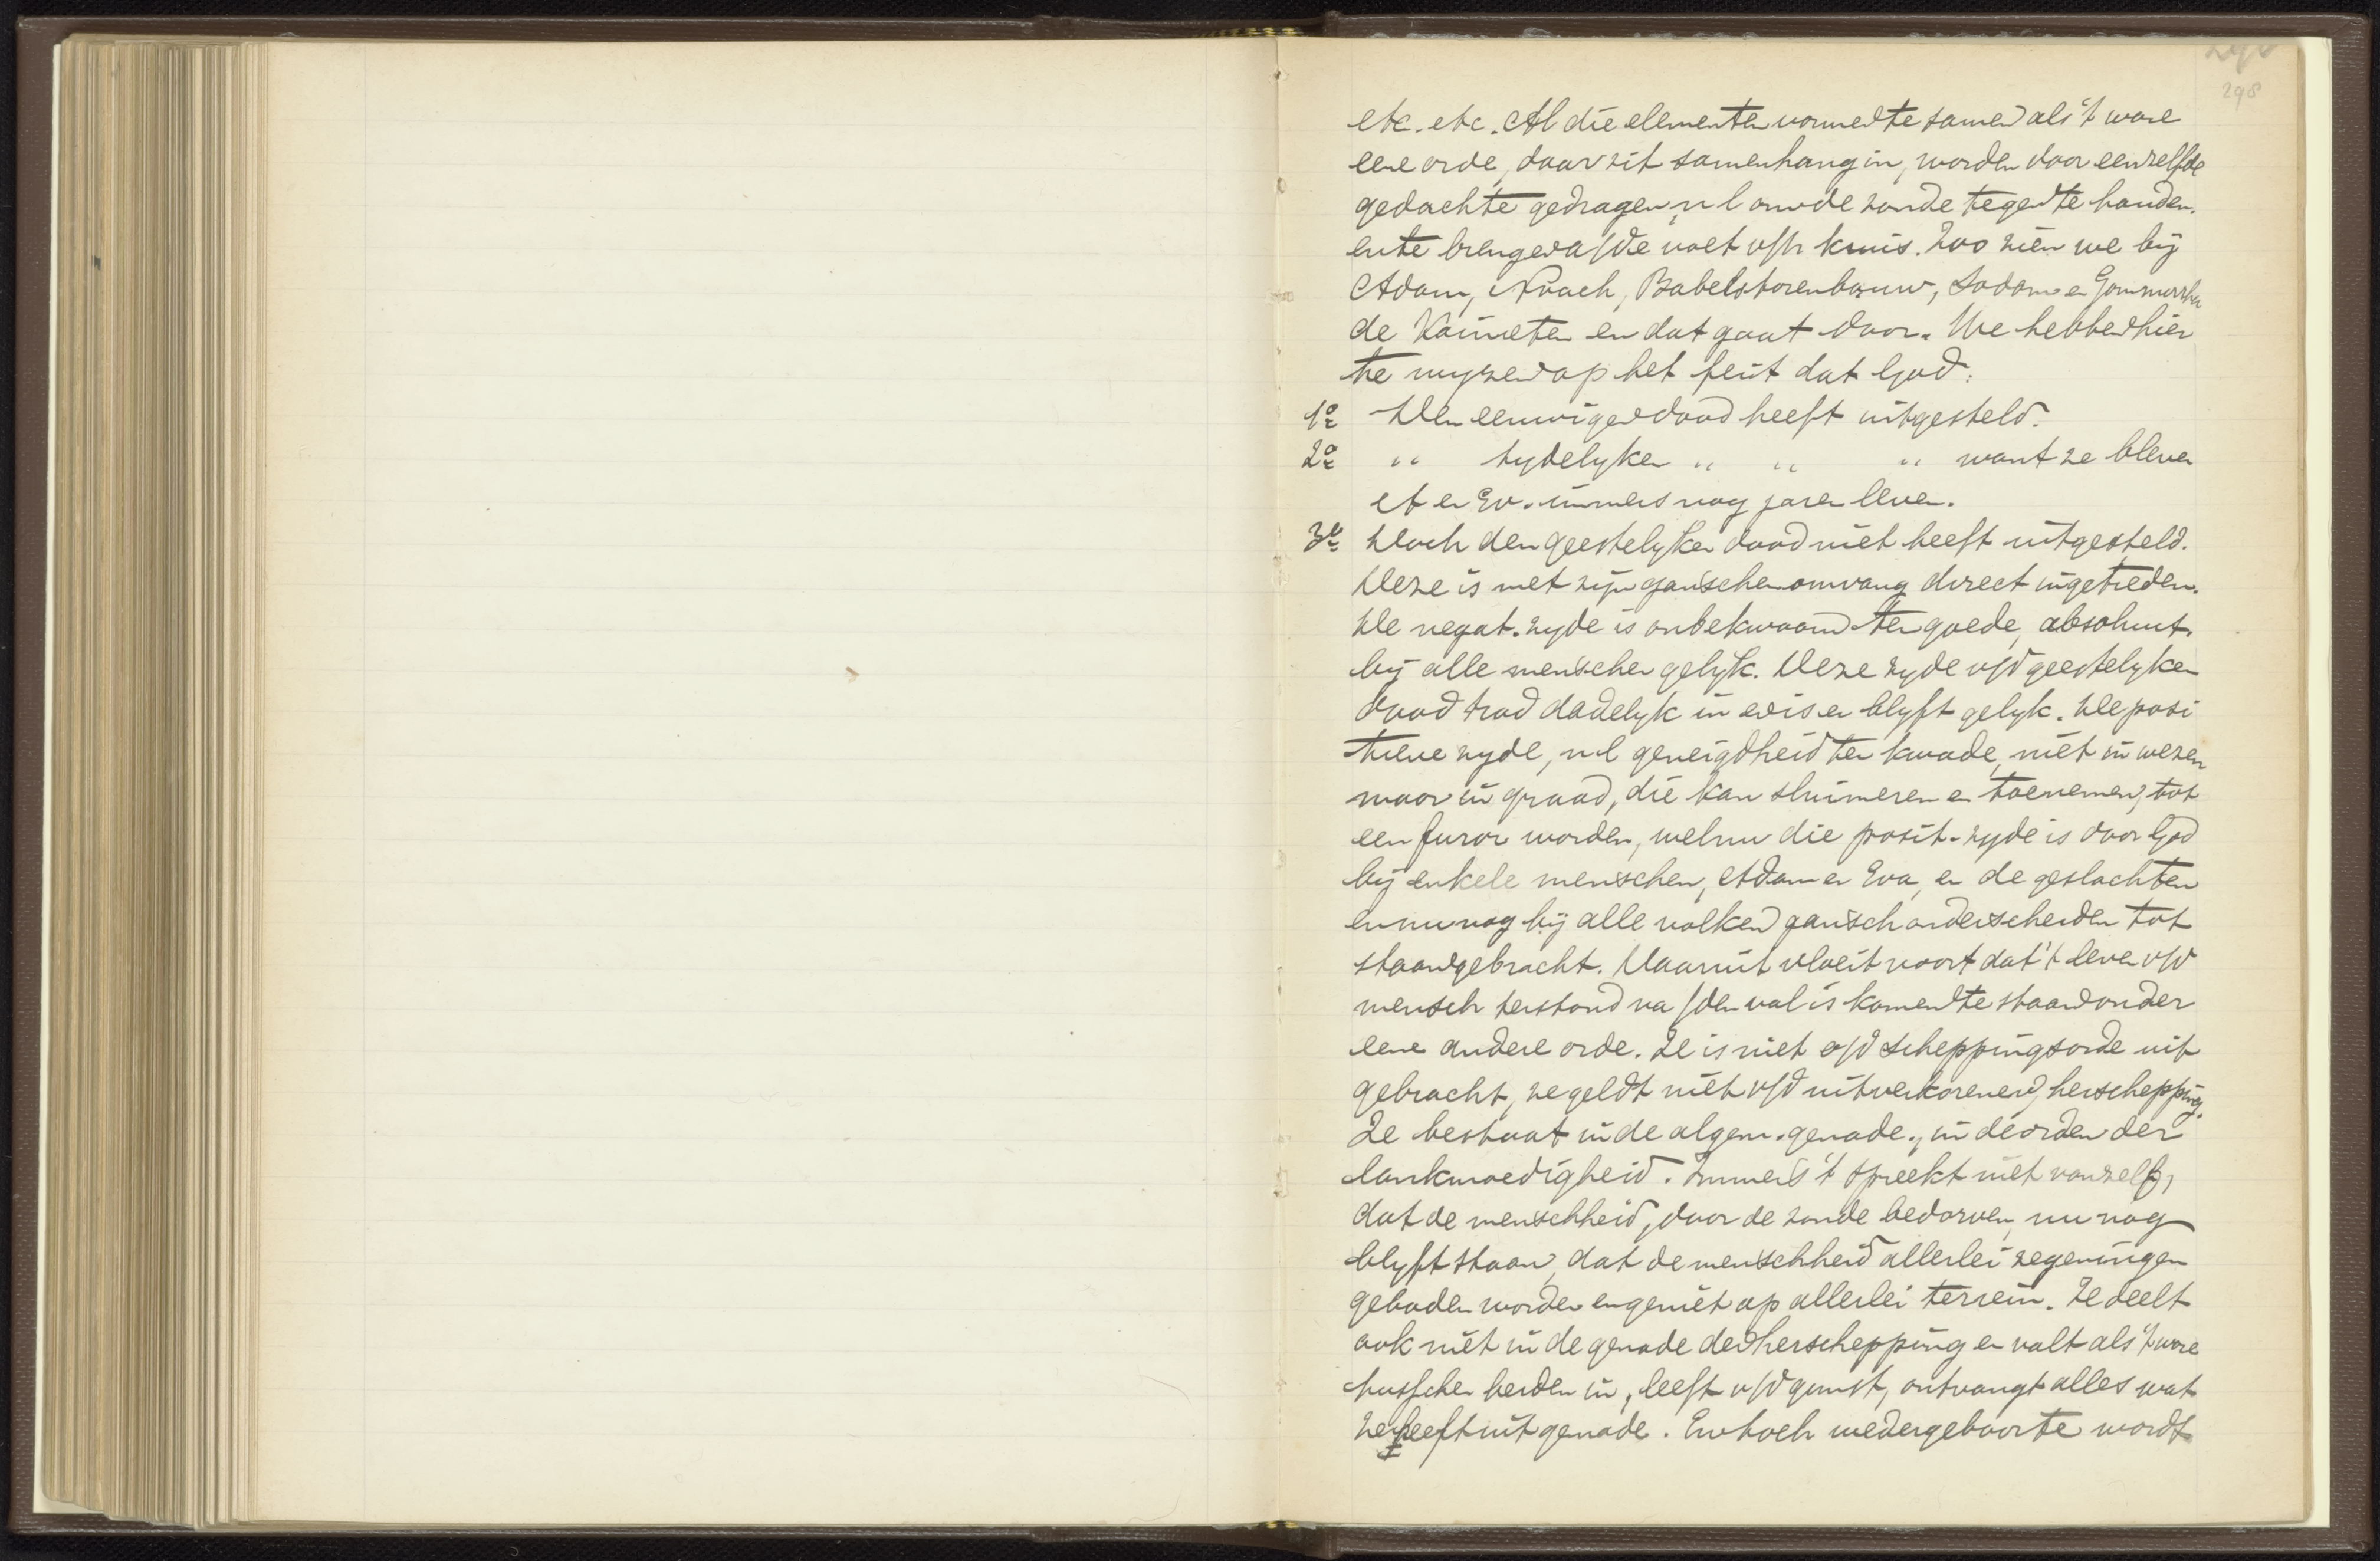 298
etc. etc. Al die elementen vormen te samen als 't ware
eene orde, daar zit samenhang in, worden door eenzelfde
gedachte gedragen, nl om de zonde tegen te houden.
en te brengen a/d voet v/h kruis. Zoo zien we bij
Adam, Noach, Babelstorenbouw, Sodom en Gommorrha
de Kaïnieten en dat gaat door. We hebben hier
te wyzen op het feit dat God:
1º Den eeuwigen dood heeft uitgesteld.
2º " tydelyken " " " want ze bleven
A en Ev. immers nog jaren leven.
3º Doch den geestelyken dood niet heeft uitgesteld.
Deze is met zijn ganschen omvang direct ingetreden.
De negat. zyde is onbekwaam ten goede, absoluut.
bij alle menschen gelyk. Deze zyde v/d geestelyken
dood trad dadelyk in en is en blyft gelyk. De posi
tieve zyde, nl geneigdheid ten kwade, niet in wezen
maar in graad, die kan sluimeren en toenemen, tot
een furor worden, welnu die posit. zyde is door God
bij enkele menschen, Adam en Eva, en de geslachten
en nu nog bij alle volken gansch onderscheiden tot
staan gebracht. Daaruit vloeit voort dat 't leven v/d
mensch terstond na /den val is komen te staan onder
eene andere orde. Ze is niet v/d scheppingsorde uit
gebracht, ze geldt niet v/d uitverkorenen, herschepping.
Ze bestaat in de algem. genade., in de orden der
lankmoedigheid. Immers 't spreekt niet vanzelf,
dat de menschheid, door de zonde bedorven, nu nog
blyft staan, dat de menschheid allerlei zegeningen
geboden worden en geniet op allerlei terrein. Ze deelt
ook niet in de genade der herschepping en valt als 't ware
tusschen beiden in, leeft v/d gunst, ontvangt alles wat
ze heeft uit genade. En toch wedergeboorte wordt